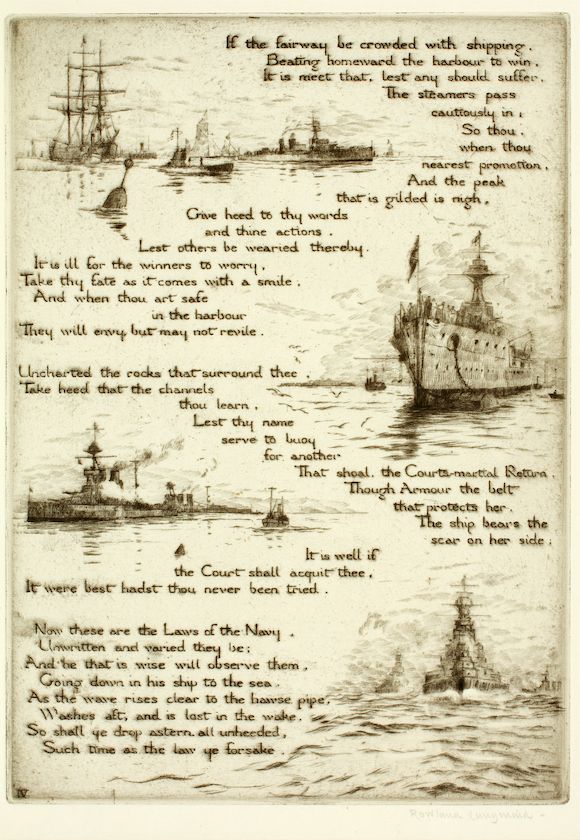 If the fairway be crowded with shipping,
Beating homeward the harbour to win,
It is meet that, lest any should suffer,
The steamers pass
cautiously in;
So thou,
when thou
nearest promotion,
And the peak
that is gilded is nigh,
Give heed to thy words
and thine actions,
Lest others be wearied thereby.
It is ill for the winners to worry,
Take thy fate as it comes with a smile,
And when thou art safe
in the harbour
They will envy, but may not revile.
Uncharted the rocks that surround thee,
Take heed that the channels
thou learn,
Lest thy name
serve to buoy
for another
That shoal, the Courts-martial Return.
Though Armour the belt
that protects her,
The ship bears the
scar on her side;
It is well if
the Court shall acquit thee,
It were best hadst thou never been tried.
Now these are the Laws of the Navy,
Unwritten and varied they be;
And he that is wise will observe them,
Going down in his ship to the sea.
As the wave rises clear to the hawse pipe,
Washes aft, and is lost in the wake,
So shall ye drop astern, all unheeded,
Such time as the law ye forsake.
IV